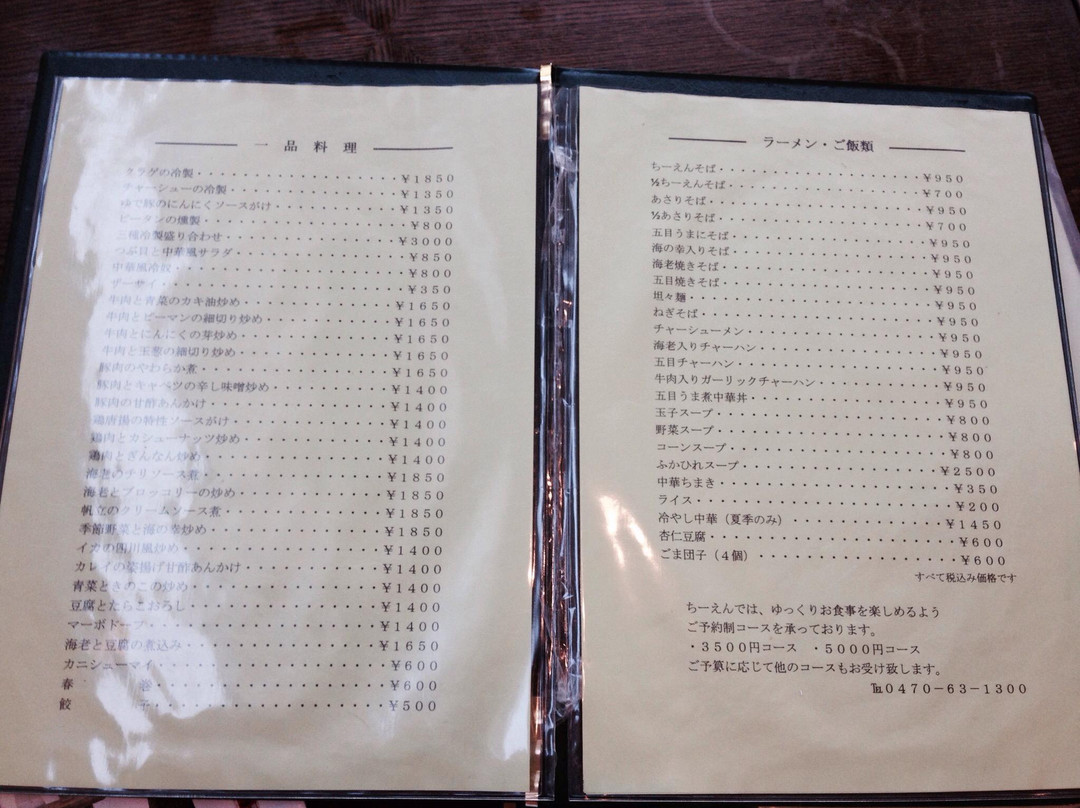 一品料理
クラゲの冷製・・・・・・・・・・・・・・・・・・・・¥1850
チャーシューの冷製・・・・・・・・・・・・・・・・・¥1350
ゆで豚のにんにくソースがけ・・・・・・・・・・・・・¥1350
ピータンの燻製・・・・・・・・・・・・・・・・・・・¥800
三種冷製盛り合わせ・・・・・・・・・・・・・・・・・¥3000
つぶ貝と中華風サラダ・・・・・・・・・・・・・・・・¥850
中華風冷奴・・・・・・・・・・・・・・・・・・・・・¥800
ザーサイ・・・・・・・・・・・・・・・・・・・・・・¥350
牛肉と青菜のカキ油炒め・・・・・・・・・・・・・・・¥1650
牛肉とピーマンの細切り炒め・・・・・・・・・・・・・¥1650
牛肉とにんにくの芽炒め・・・・・・・・・・・・・・・¥1650
牛肉と玉葱の細切り炒め・・・・・・・・・・・・・・・¥1650
豚肉のやわらか煮・・・・・・・・・・・・・・・・・・¥1650
豚肉とキャベツの辛し味噌炒め・・・・・・・・・・・・¥1400
豚肉の甘酢あんかけ・・・・・・・・・・・・・・・・・¥1400
鶏唐揚の特性ソースがけ・・・・・・・・・・・・・・・¥1400
鶏肉とカシューナッツ炒め・・・・・・・・・・・・・・¥1400
鶏肉とぎんなん炒め・・・・・・・・・・・・・・・・・¥1400
海老のチリソース煮・・・・・・・・・・・・・・・・・¥1850
海老とブロッコリーの炒め・・・・・・・・・・・・・・¥1850
帆立のクリームソース煮・・・・・・・・・・・・・・・¥1850
季節野菜と海の幸炒め・・・・・・・・・・・・・・・・¥1850
イカの四川風炒め・・・・・・・・・・・・・・・・・・¥1400
カレイの姿揚げ甘酢あんかけ・・・・・・・・・・・・・¥1400
青菜ときのこの炒め・・・・・・・・・・・・・・・・・¥1400
豆腐とたらこおろし・・・・・・・・・・・・・・・・・¥1400
マーボドーフ・・・・・・・・・・・・・・・・・・・・¥1400
海老と豆腐の煮込み・・・・・・・・・・・・・・・・・¥1650
カニシューマイ・・・・・・・・・・・・・・・・・・・¥600
春　　　巻・・・・・・・・・・・・・・・・・・・・・¥600
餃　　　子・・・・・・・・・・・・・・・・・・・・・¥500
ラーメン・ご飯類
ちーえんそば・・・・・・・・・・・・・・・・・・¥950
½ちーえんそば・・・・・・・・・・・・・・・・・¥700
あさりそば・・・・・・・・・・・・・・・・・・・¥950
½あさりそば・・・・・・・・・・・・・・・・・・¥700
五目うまにそば・・・・・・・・・・・・・・・・・¥950
海の幸入りそば・・・・・・・・・・・・・・・・・¥950
海老焼きそば・・・・・・・・・・・・・・・・・・¥950
五目焼きそば・・・・・・・・・・・・・・・・・・¥950
坦々麺・・・・・・・・・・・・・・・・・・・・・¥950
ねぎそば・・・・・・・・・・・・・・・・・・・・¥950
チャーシューメン・・・・・・・・・・・・・・・・¥950
海老入りチャーハン・・・・・・・・・・・・・・・¥950
五目チャーハン・・・・・・・・・・・・・・・・・¥950
牛肉入りガーリックチャーハン・・・・・・・・・・¥950
五目うま煮中華丼・・・・・・・・・・・・・・・・¥950
玉子スープ・・・・・・・・・・・・・・・・・・・¥800
野菜スープ・・・・・・・・・・・・・・・・・・・¥800
コーンスープ・・・・・・・・・・・・・・・・・・¥800
ふかひれスープ・・・・・・・・・・・・・・・・・¥2500
中華ちまき・・・・・・・・・・・・・・・・・・・¥350
ライス・・・・・・・・・・・・・・・・・・・・・¥200
冷やし中華（夏季のみ）・・・・・・・・・・・・・¥1450
杏仁豆腐・・・・・・・・・・・・・・・・・・・・¥600
ごま団子（4個）・・・・・・・・・・・・・・・・¥600
すべて税込み価格です
ちーえんでは、ゆっくりお食事を楽しめるよう
ご予約制コースを承っております。
・3500円コース　・5000円コース
ご予算に応じて他のコースもお受け致します。
℡0470－63－1300